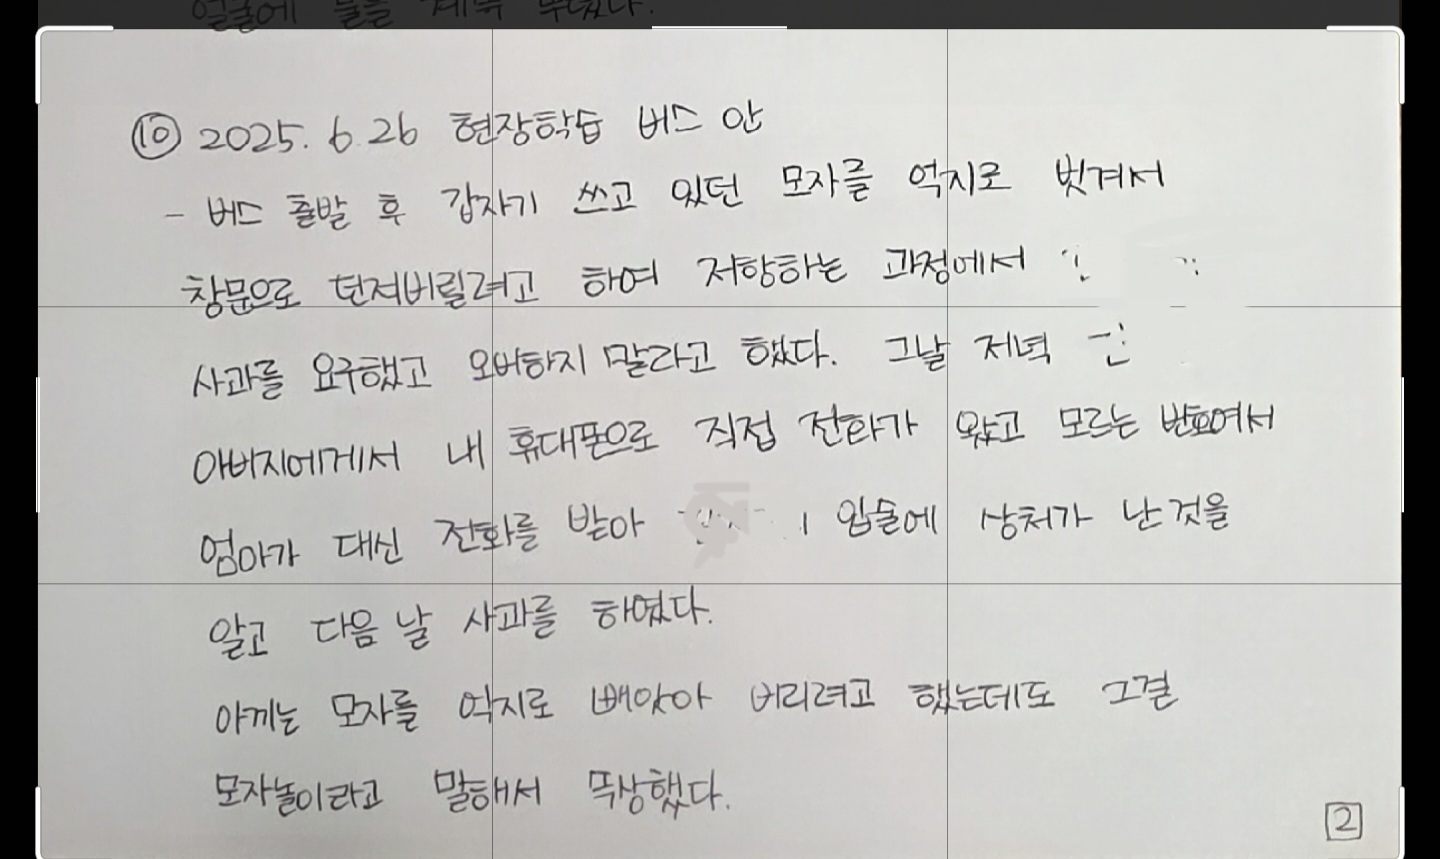 얼굴에
⑩ 2025. 6. 26 현장학습 버스 안
- 버스 출발 후 갑자기 쓰고 있던 모자를 억지로 벗겨서
창문으로 던져버릴려고 하여 저항하는 과정에서
사과를 요구했고 오버하지 말라고 했다. 그날 저녁
아버지에게서 내 휴대폰으로 직접 전화가 왔고 모르는 번호여서
엄마가 대신 전화를 받아 입술에 상처가 난 것을
알고 다음 날 사과를 하였다.
아끼는 모자를 억지로 빼앗아 버리려고 했는데도 그걸
모자놀이라고 말해서 뚝상했다.
2